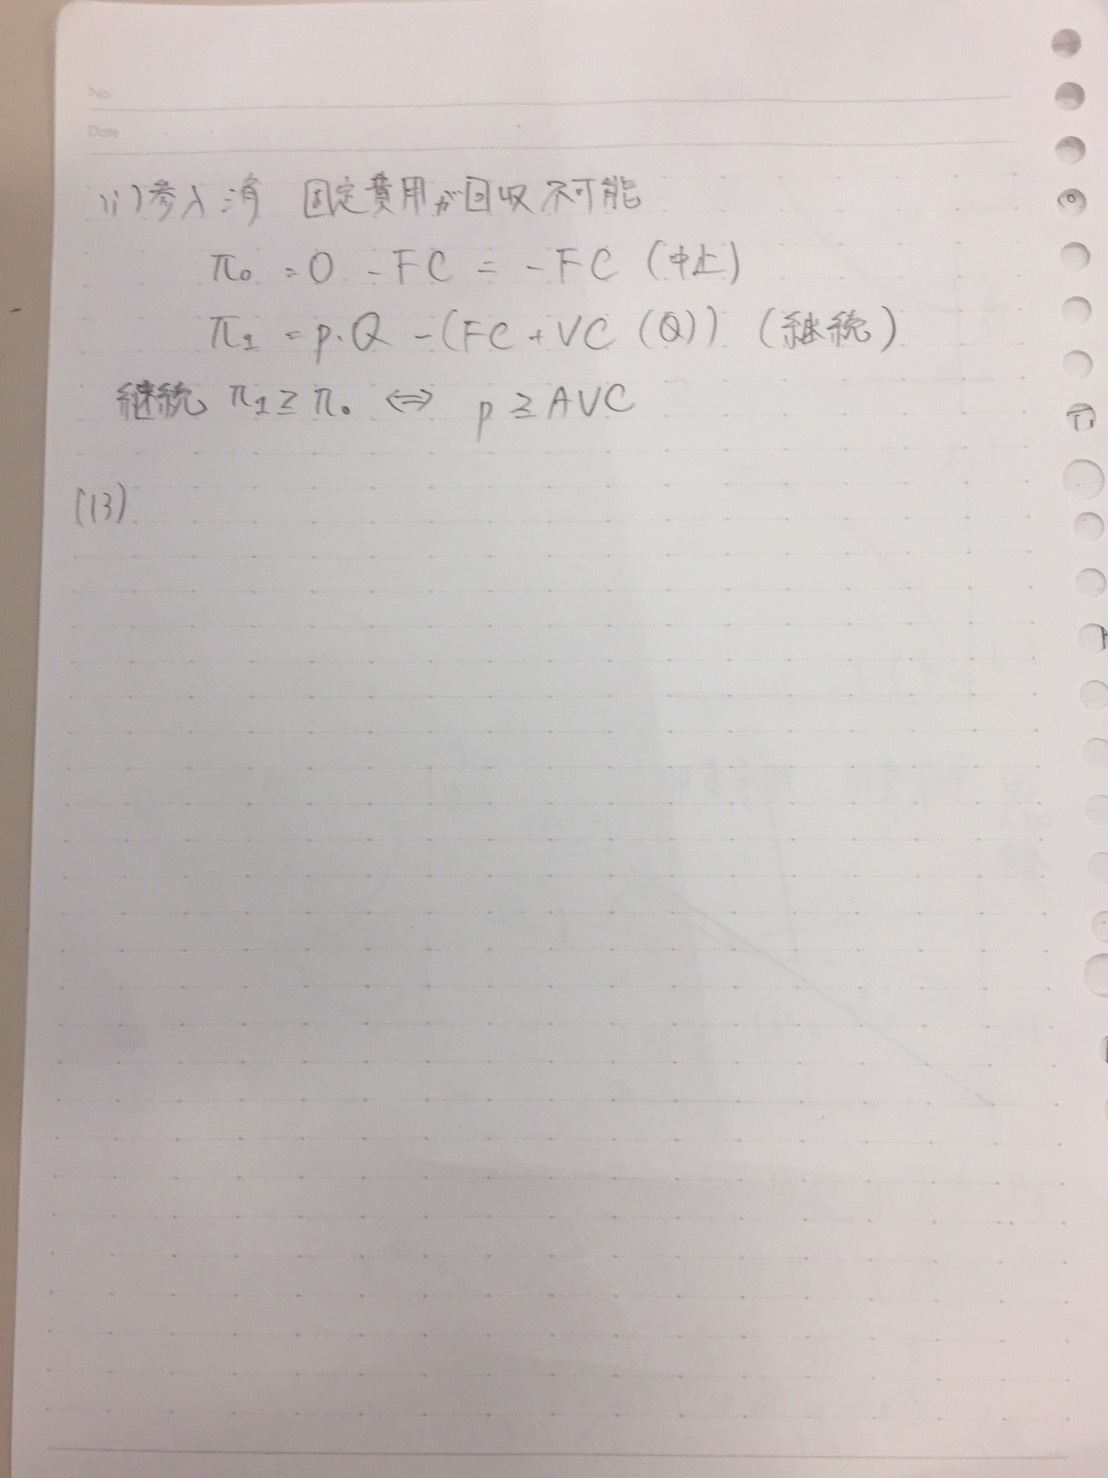 No.
Date
ii)参入済 固定費用が回収不可能
π₀ = 0 - FC = - FC (中止)
π₁ = p・Q - (FC + VC (Q)) (継続)
継続 π₁ ≥ π₀ ⇔ p ≥ AVC
(13)